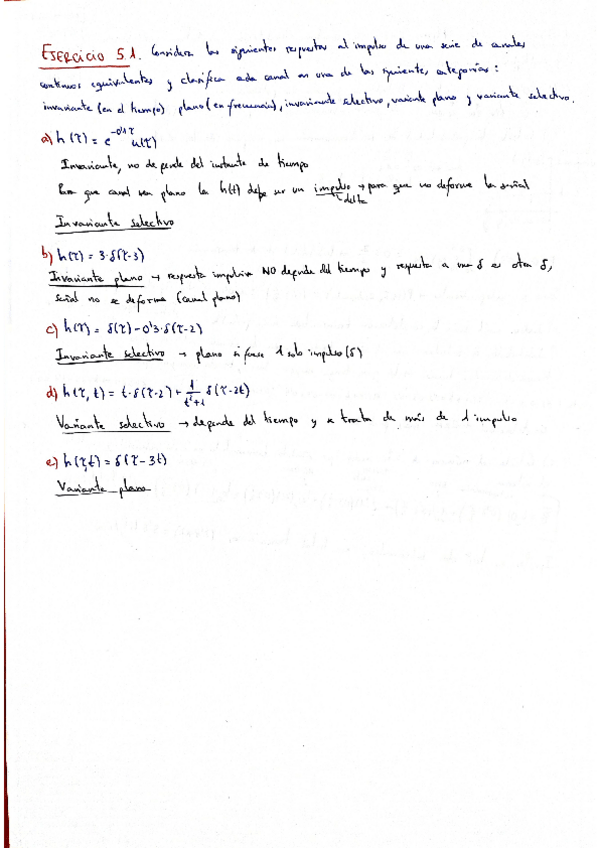 EJERCICIO 5.1. Considera las siguientes respuestas al impulso de una serie de canales
continuos equivalentes y clasifica cada canal en una de las siguientes categorías:
invariante (en el tiempo) plano (en frecuencia), invariante selectivo, variante plano y variante selectivo.
a) h(τ) = e^(-0'1τ) u(τ)
Invariante, no depende del instante de tiempo
Para que canal sea plano la h(t) debe ser un impulso → para que no deforme la señal
↳ delta
Invariante selectivo
b) h(τ) = 3·δ(τ-3)
Invariante plano → respuesta impulsiva NO depende del tiempo y respuesta a una δ es otra δ,
señal no se deforma (canal plano)
c) h(τ) = δ(τ) - 0'3·δ(τ-2)
Invariante selectivo → plano si fuese 1 solo impulso (δ)
d) h(τ, t) = t·δ(τ-2) + 1/(t²+1) δ(τ-2t)
Variante selectivo → depende del tiempo y se trata de más de 1 impulso
e) h(τ,t) = δ(τ-3t)
Variante plano